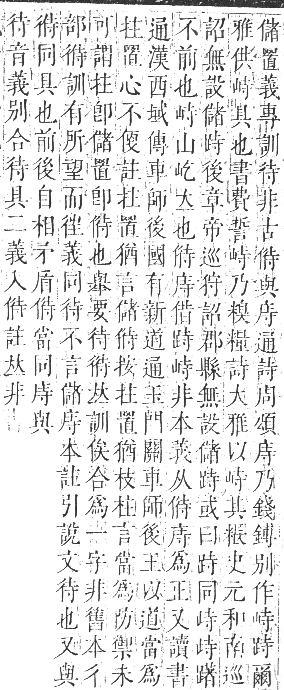 儲置義專訓待非古偫與庤通詩周頌庤乃錢鎛別作峙跱爾
雅供峙具也書費誓峙乃糗糧詩大雅以峙其粻史元和南巡
詔無設儲跱後章帝巡狩詔郡縣無設儲跱或曰跱同峙峙躇
不前也峙山屹立也偫庤借跱峙非本義从偫庤爲正又讀書
通漢西域傳車師後國有新道通玉門關車師後王以道當爲
拄置心不便註拄置猶言儲偫按拄置猶枝柱言當爲防禦未
可謂拄卽儲置卽偫也舉要待偫𠀤訓俟合爲一字非舊本彳
部待訓有所望而徃義同待不言儲庤本註引說文待也又與
偫同具也前後自相矛盾偫當同庤與
待音義別合待具二義入偫註𠀤非